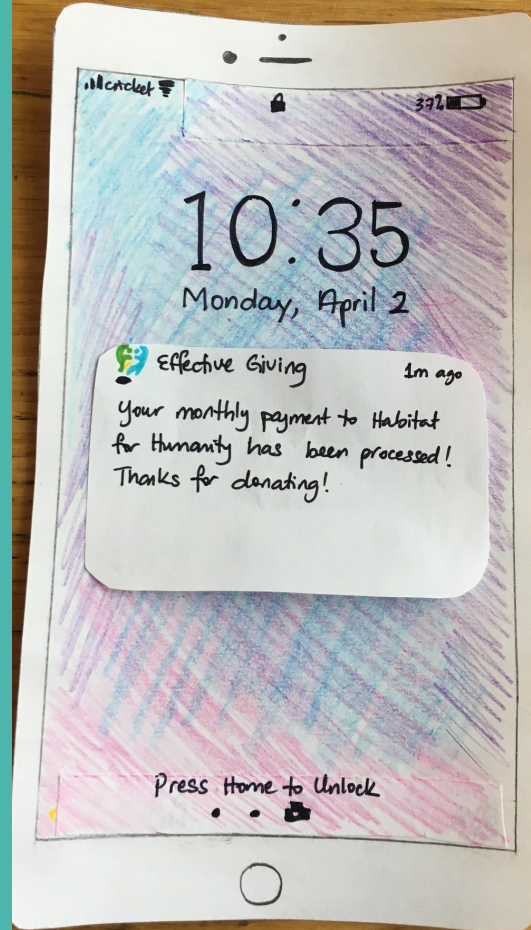 cricket 37%
10:35
Monday, April 2
Effective Giving 1m ago
Your monthly payment to Habitat
for Humanity has been processed!
Thanks for donating!
Press Home to Unlock